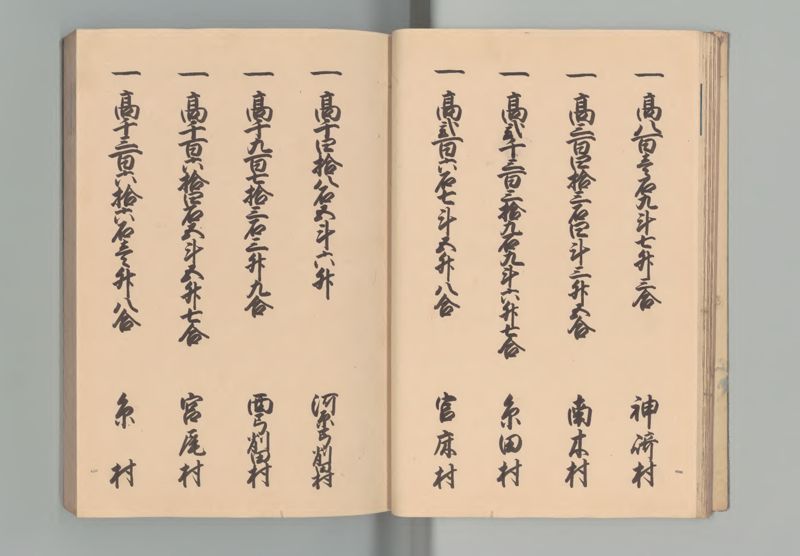 一 高八百壱石九斗七升三合 神済村
一 高三百四拾三石四斗三升五合 南木村
一 高弐千三百三拾九石九斗六升七合 糸田村
一 高弐百六石七斗五升八合 官床村
一 高千四拾八石五斗六升 河原弓削田村
一 高千九百七拾三石三升九合 西弓削田村
一 高千百六拾四石五斗五升七合 宮尾村
一 高千三百六拾六石壱升八合 糸村